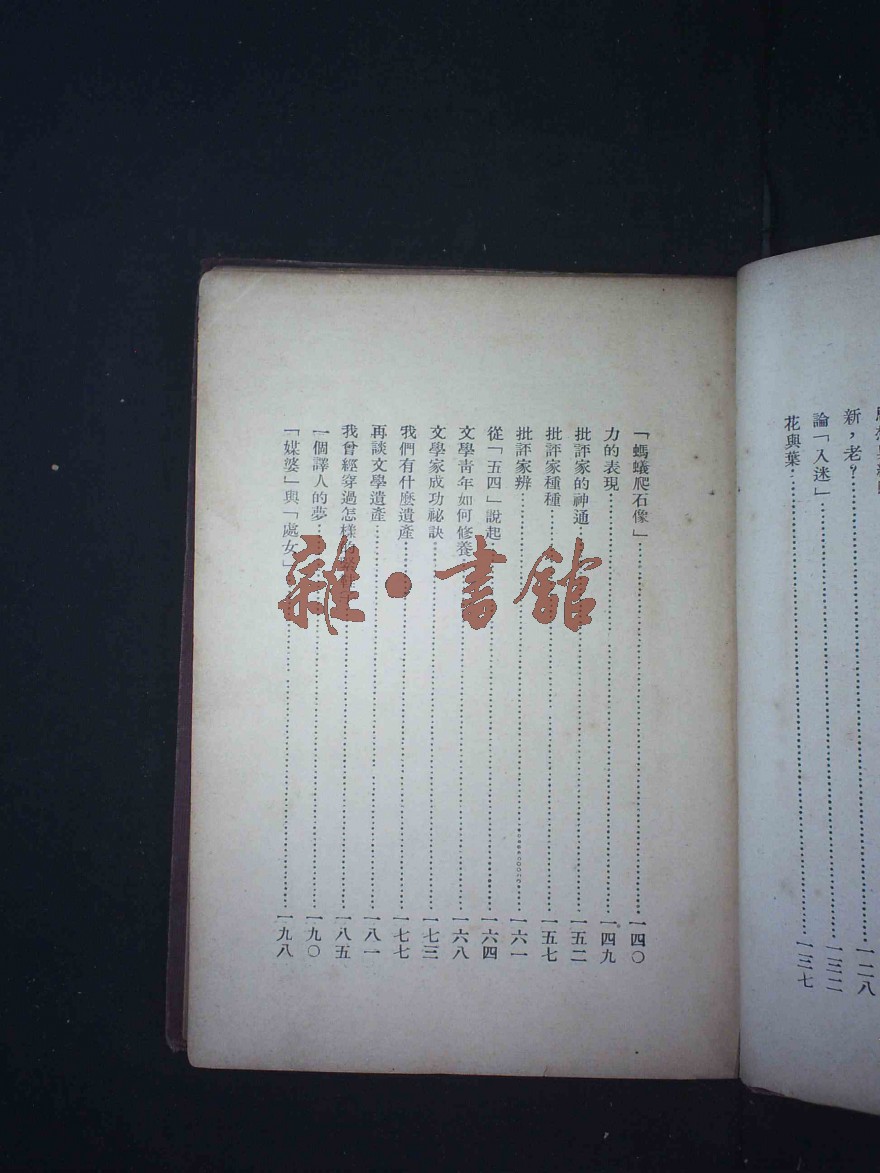 新，老？……一二八
論「入迷」……一三二
花與葉……一三七
「螞蟻爬石像」……一四〇
力的表現……一四九
批評家的神通……一五二
批評家種種……一五七
批評家辨……一六一
從「五四」說起……一六四
文學青年如何修養……一六八
文學家成功祕訣……一七三
我們有什麼遺產……一七七
再談文學遺產……一八一
我曾經穿過怎樣的……一八五
一個譯人的夢……一九〇
「媒婆」與「處女」……一九八
雜·書館